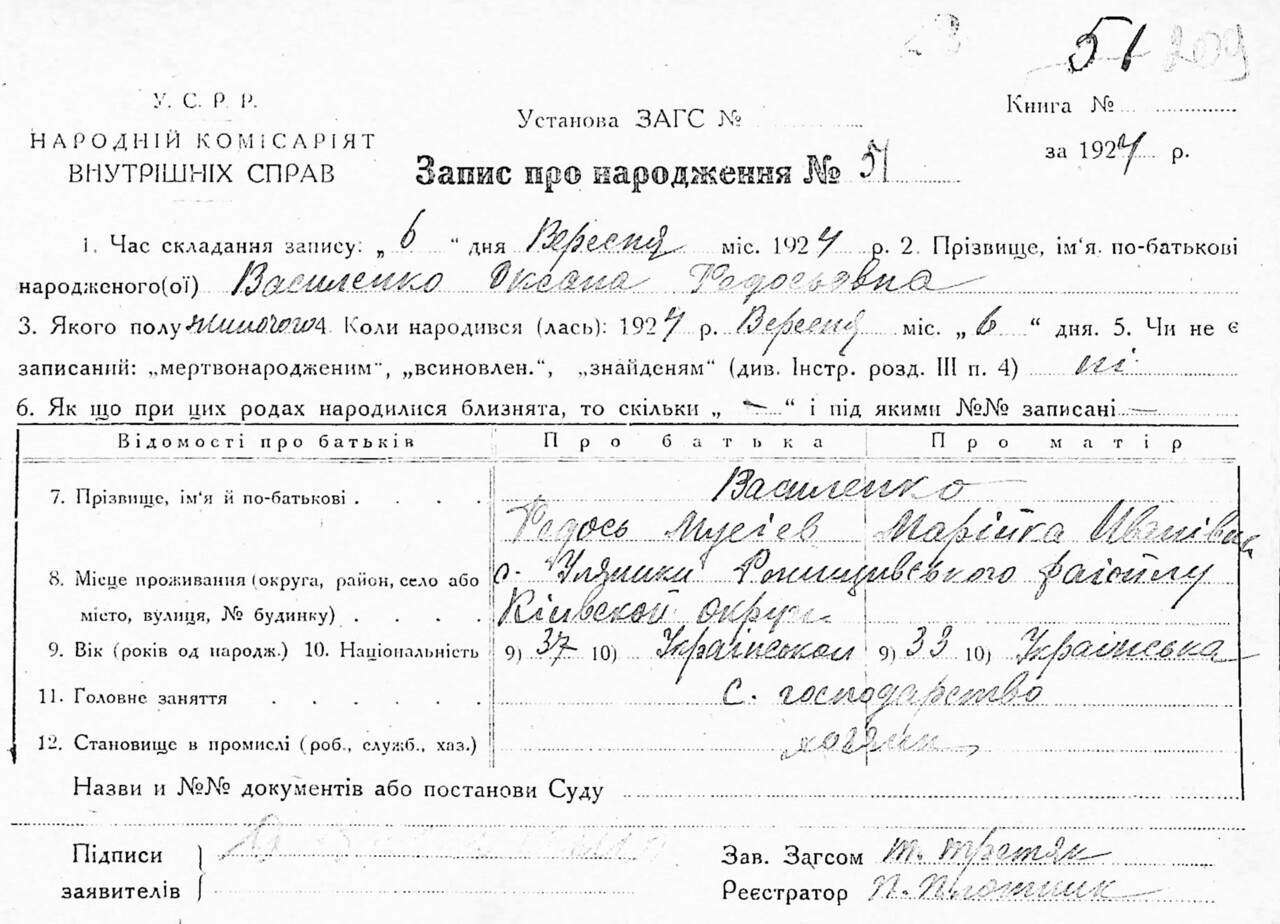 51 209
У. С. Р. Р.
НАРОДНІЙ КОМІСАРІЯТ
ВНУТРІШНІХ СПРАВ
Установа ЗАГС №
Книга №
за 1924 р.
Запис про народження № 51
1. Час складання запису: „ 6 “ дня Вересня міс. 1924 р. 2. Прізвище, ім'я. по-батькові
народженого(ої) Василенко Оксана Федосьовна
3. Якого полу жиночого 4. Коли народився (лась): 1924 р. Вересня міс. „ 6 “ дня. 5. Чи не є
записаний: „мертвонародженим“, „всиновлен.“, „знайденям“ (див. Інстр. розд. III п. 4) ні
6. Як що при цих родах народилися близнята, то скільки „ — “ і під якими №№ записані —
Відомості про батьків Про батька Про матір
7. Прізвище, ім'я й по-батькові . . . . Василенко
Федось Мусіев Марійка Іванівна
8. Місце проживання (округа, район, село або с. Уляники району
місто, вулиця, № будинку) . . . . Київской округи
9. Вік (років од народж.) 10. Національність 9) 37 10) Українськой 9) 33 10) Українська
11. Головне заняття . . . . . . с. господарство
12. Становище в промислі (роб., служб., хаз.) хазяин
Назви и №№ документів або постанови Суду
Підписи
заявителів
Зав. Загсом т. третяк
Реєстратор П. Плотник